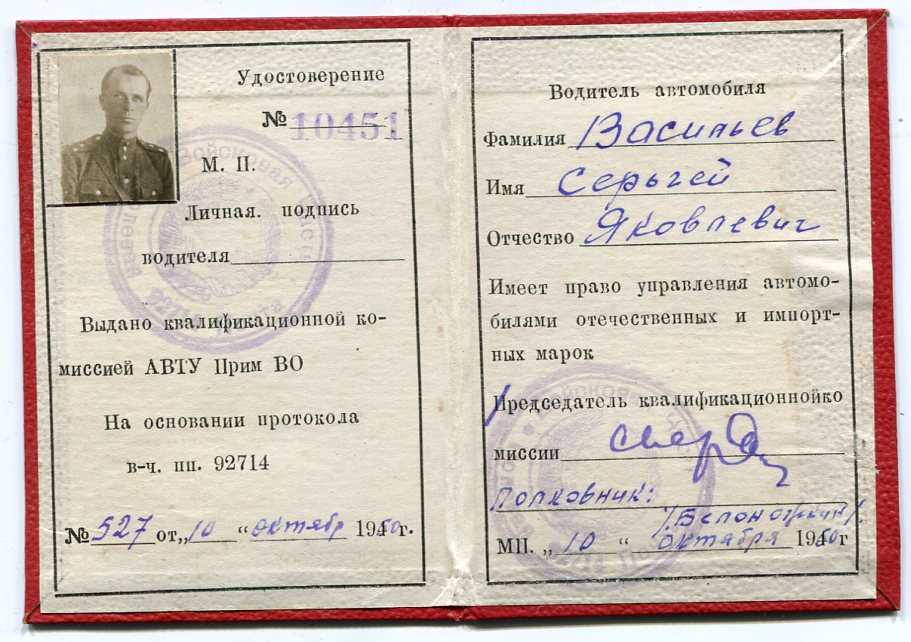 Удостоверение
№ 10451
М. П.
Личная. подпись
водителя
Выдано квалификационной ко-
миссией АВТУ Прим ВО
На основании протокола
в-ч. пп. 92714
№ 527 от „10 “ октябр 1950 г.
Войсковая часть
Водитель автомобиля
Фамилия Васильев
Имя Серьгей
Отчество Яковлевич
Имеет право управления автомо-
билями отечественных и импорт-
ных марок
Председатель квалификационнойко
миссии
Полковник:
МП. „ 10 “ октября 1950 г